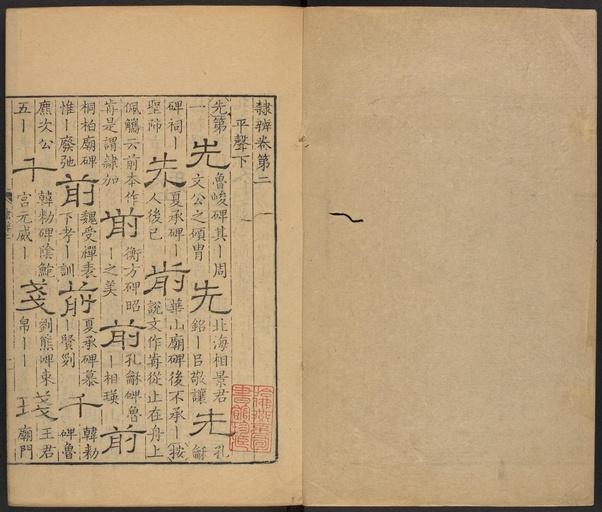 隸辨卷第二
平聲下
先第一
先 魯峻碑其丨周文公之碩胄
先 北海相景君銘丨呂敬讓
先 孔龢碑祠丨聖師
先 夏承碑丨人後己
歬 華山廟碑後不承丨 按說文作歬從止在舟上佩觿云前本作歬是謂隸加
前 衡方碑昭丨之美
前 孔龢碑魯丨相瑛
前 桐柏廟碑惟丨廢弛
前 魏受禪表下孝丨訓
前 夏承碑慕丨賢剡
千 韓勑碑魯麃次公五丨
千 韓勑碑陰鮑宮元威丨
戔 劉熊碑束帛丨丨
王君廟門